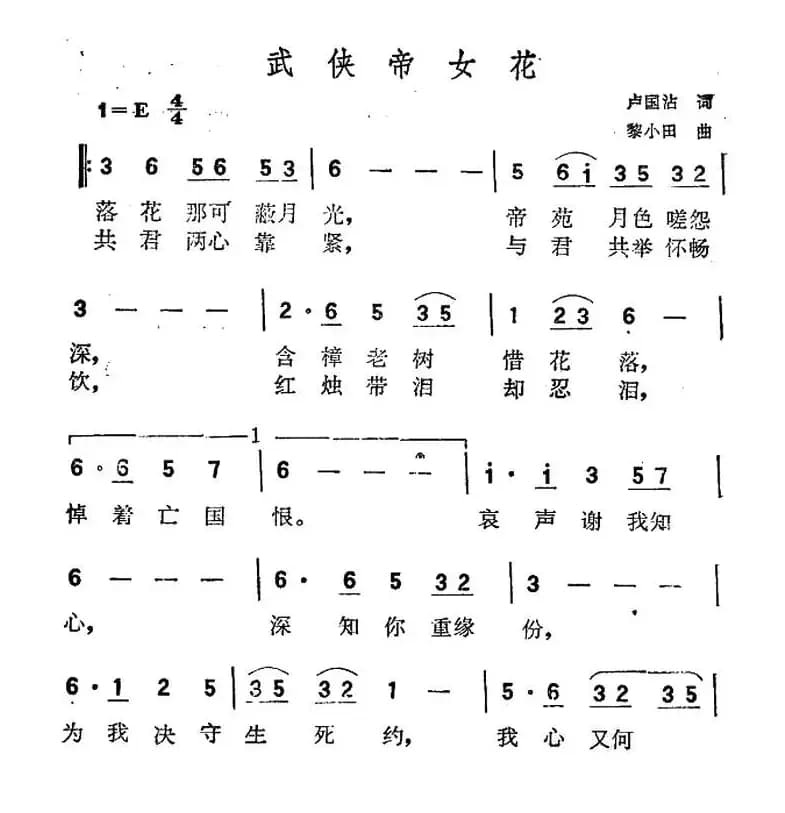 武侠帝女花
1=E 4/4
卢国沾 词
黎小田 曲
3 6 56 53 | 6 — — — | 5 6i 35 32 |
落花那可蔽月光， 帝苑月色嗟怨
共君两心靠紧， 与君共举怀畅
3 — — — | 2· 6 5 35 | 1 23 6 — |
深， 含樟老树惜花落，
饮， 红烛带泪却忍泪，
1
6· 6 5 7 | 6 — — — | i· i 3 57 |
悼着亡国恨。 哀声谢我知
6 — — — | 6· 6 5 32 | 3 — — — |
心， 深知你重缘份，
6· 1 2 5 | 35 32 1 — | 5· 6 32 35 |
为我决守生死约， 我心又何